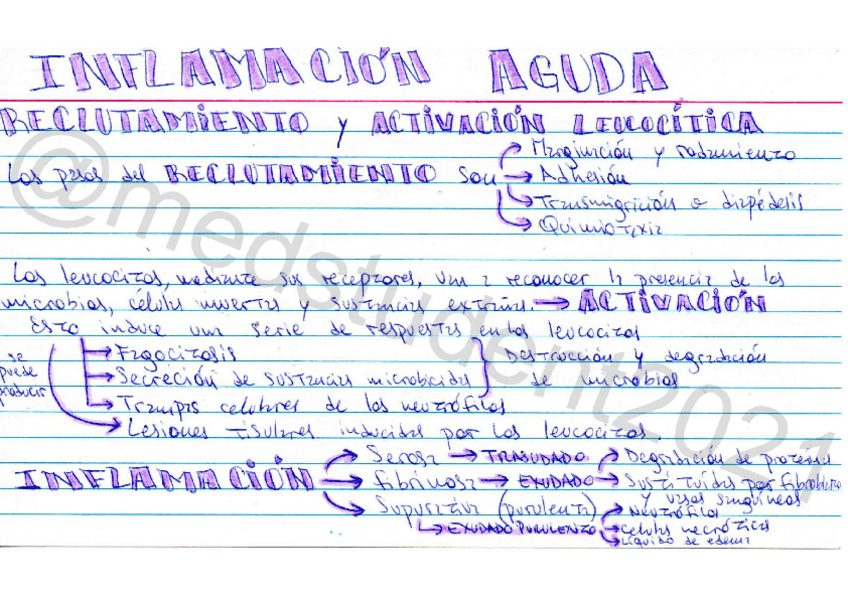 INFLAMACIÓN AGUDA
RECLUTAMIENTO y ACTIVACIÓN LEUCOCÍTICA
Marginación y rodamiento
Los pasos del RECLUTAMIENTO son → Adhesión
Transmigración o diapédesis
Quimiotaxis
Los leucocitos, mediante sus receptores, van a reconocer la presencia de los
microbios, células muertas y sustancias extrañas. → ACTIVACIÓN
Esto induce una serie de respuestas en los leucocitos
se puede producir
Fagocitosis
Secreción de sustancias microbicidas
Destrucción y degradación
de microbios
Trampas celulares de los neutrófilos
Lesiones tisulares inducidas por los leucocitos.
INFLAMACIÓN
Serosa → TRASUDADO → Degradación de proteínas
Fibrinosa → EXUDADO → Sustituídas por fibroblastos
y vasos sanguíneos
Supurativa (purulenta)
EXUDADO PURULENTO
Neutrófilos
Células necróticas
Líquido de edema
@medstudent2021